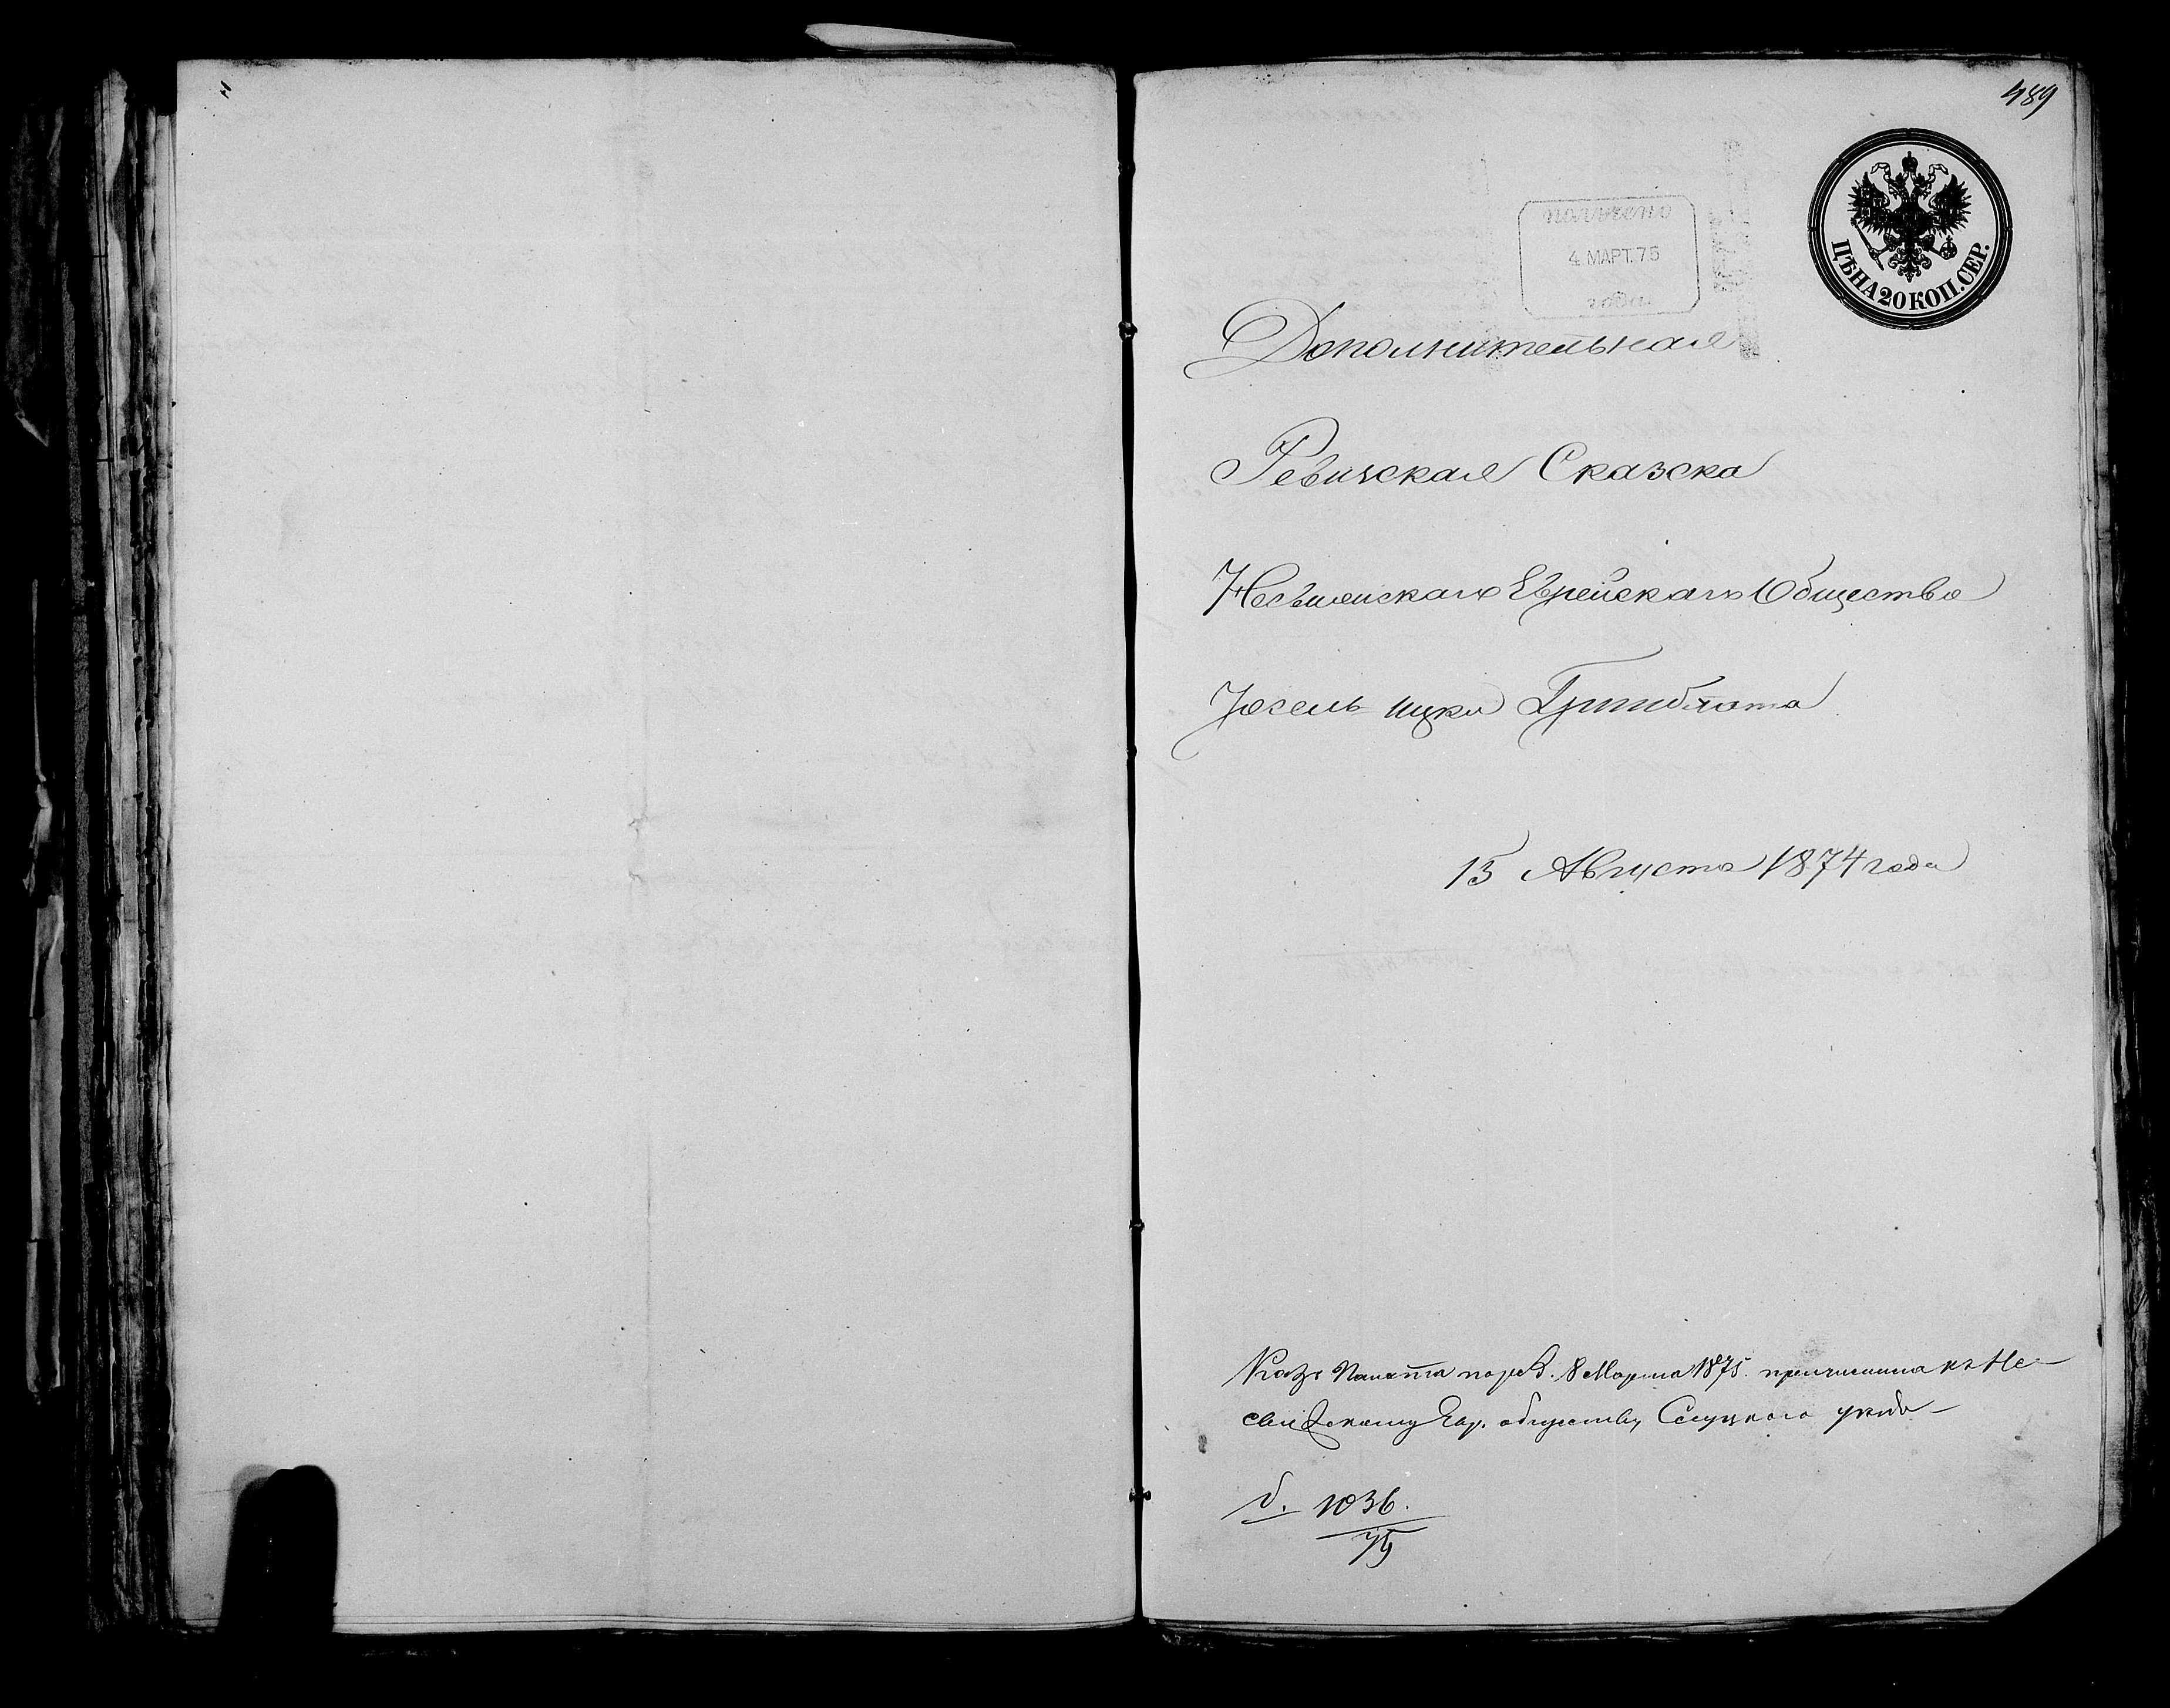 489
получено
4 МАРТ. 75
года
ЦѢНА 20 КОП. СЕР.
Дополнительная
Ревизская Сказска
Несвижскаго Еврейскаго Общества
Іосель Ицки Гринблата
15 Августа 1874 года
Каз. Палата 8 Марта 1875. причислила къ Не-
свижскому Евр. обществу, Слуцкаго уѣзда
1036.
75